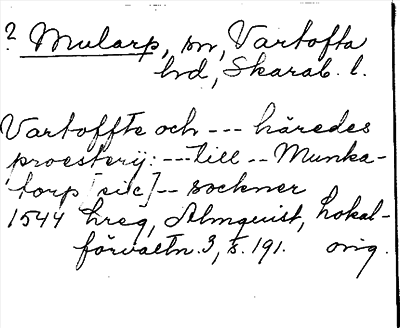 ? Mularp, sn, Vartofta
hd, Skarab. l.
Vartoffte och --- häredes
proesterij: --- till -- Munka-
torp [sic] -- sockner
1544 hreg, Almquist, Lokal-
förvaltn. 3, s. 191. orig.